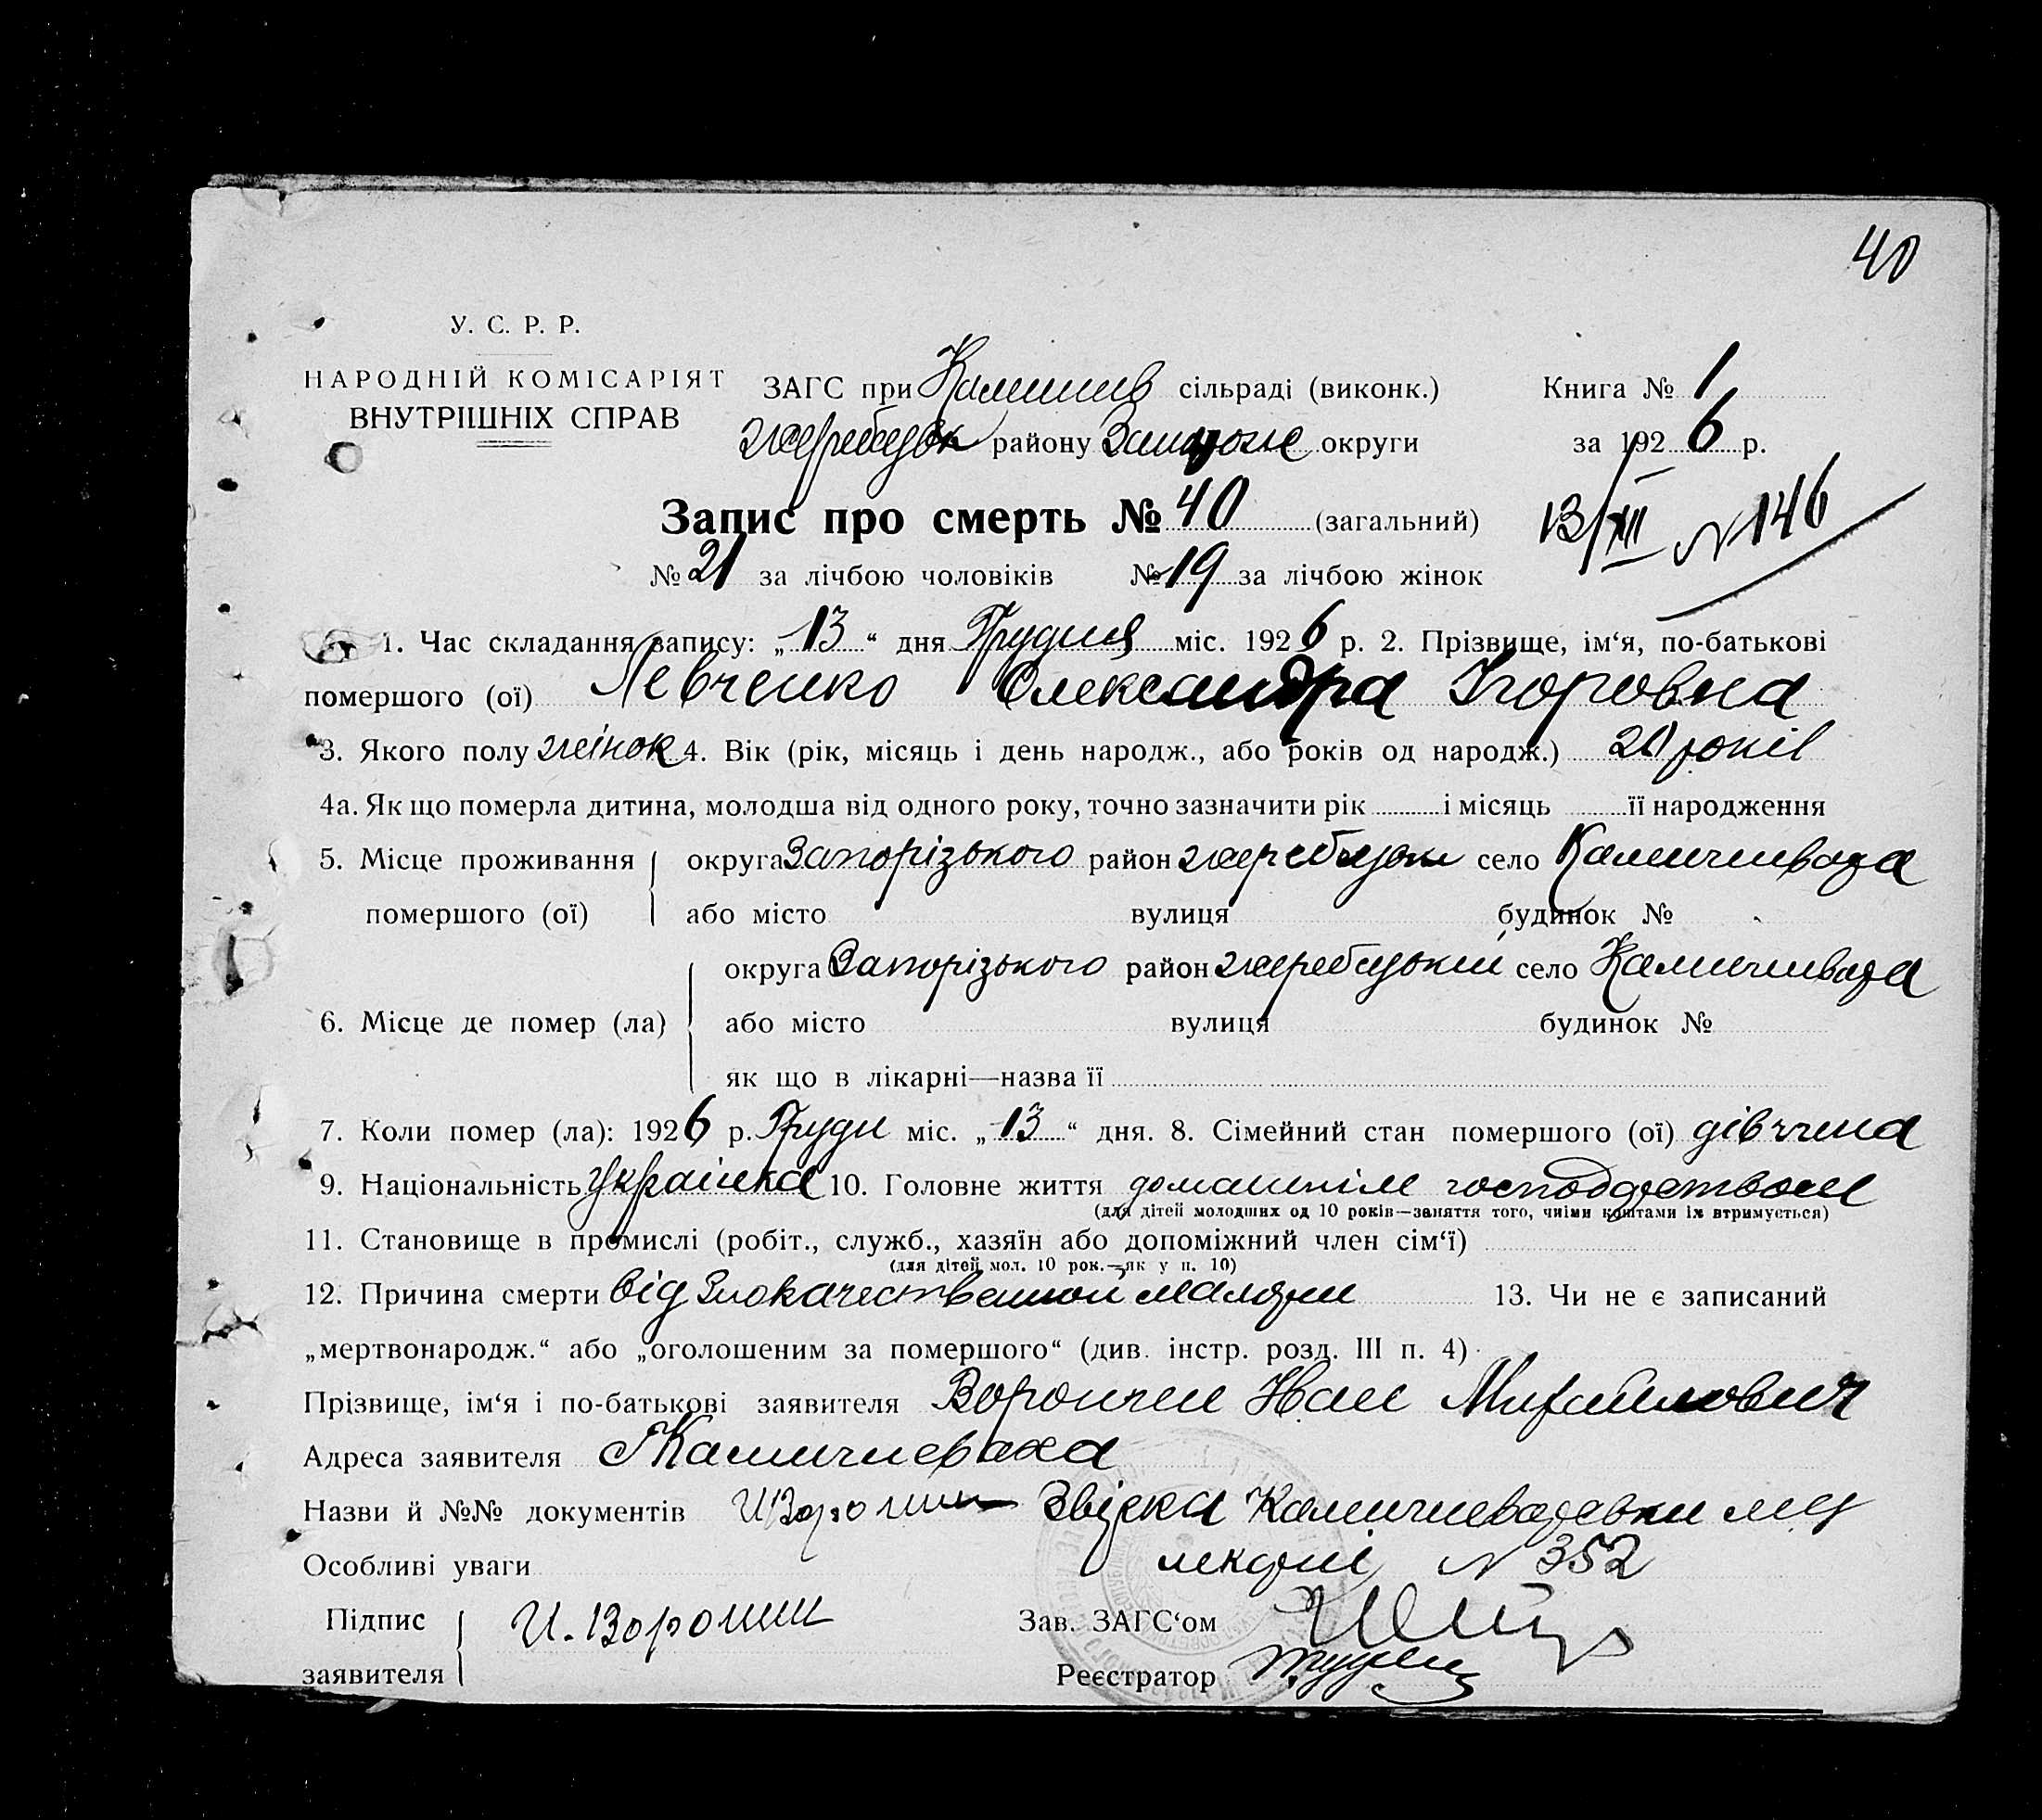 40
У. С. Р. Р.
НАРОДНІЙ КОМІСАРІЯТ
ВНУТРІШНІХ СПРАВ
ЗАГС при Камишев сільраді (виконк.) Книга № 1
жеребецьк району Запоріж округи за 1926 р.
Запис про смерть № 40 (загальний) 13/XII N 146
№ 21 за лічбою чоловіків № 19 за лічбою жінок
1. Час складання запису: „13“ дня Грудня міс. 1926 р. 2. Прізвище, ім‘я, по-батькові
помершого (ої) Левченко Олександра Ігоровна
3. Якого полу жінок 4. Вік (рік, місяць і день народж., або років од народж.) 20 років
4а. Як що померла дитина, молодша від одного року, точно зазначити рік і місяць її народження
5. Місце проживання округа Запорізького район жеребецьк село Камичиваха
помершого (ої) або місто вулиця будинок №
округа Запорізького район жеребецький село Камичиваха
6. Місце де помер (ла) або місто вулиця будинок №
як що в лікарні—назва її
7. Коли помер (ла): 1926 р. Грудн міс. „13“ дня. 8. Сімейний стан помершого (ої) дівчина
9. Національність Українка 10. Головне життя домашнім господрством
(для дітей молодших од 10 років—заняття того, чиїми коштами їх втримується)
11. Становище в промислі (робіт., служб., хазяїн або допоміжний член сім‘ї)
(для дітей мол. 10 рок.—як у п. 10)
12. Причина смерти від Злокачественной маляри 13. Чи не є записаний
„мертвонародж.“ або „оголошеним за помершого“ (див. інстр. розд. III п. 4)
Прізвище, ім‘я і по-батькові заявителя Воронин Иван Михайлович
Адреса заявителя Камичневаха
Назви й №№ документів И Воронин Звідка
Особливі уваги N 352
Підпис И. Воронин Зав. ЗАГС‘ом
заявителя Реєстратор